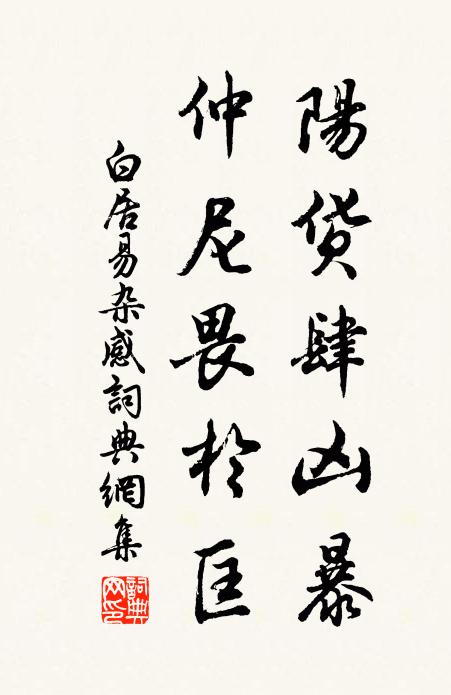 陽貨肆凶暴
仲尼畏於匡
白居易杂感詞典網集
詞典網印